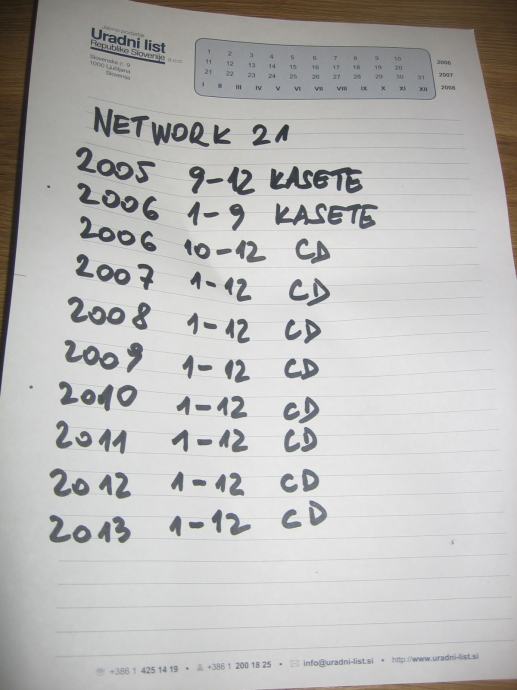 Javno podjetje
Uradni list
Republike Slovenije d.o.o.
Slovenska c. 9
1000 Ljubljana
Slovenija
1 2 3 4 5 6 7 8 9 10
11 12 13 14 15 16 17 18 19 20
21 22 23 24 25 26 27 28 29 30 31
I II III IV V VI VII VIII IX X XI XII
2006
2007
2008
NETWORK 21
2005 9-12 KASETE
2006 1-9 KASETE
2006 10-12 CD
2007 1-12 CD
2008 1-12 CD
2009 1-12 CD
2010 1-12 CD
2011 1-12 CD
2012 1-12 CD
2013 1-12 CD
+386 1 425 14 19 • +386 1 200 18 25 • info@uradni-list.si • http://www.uradni-list.si